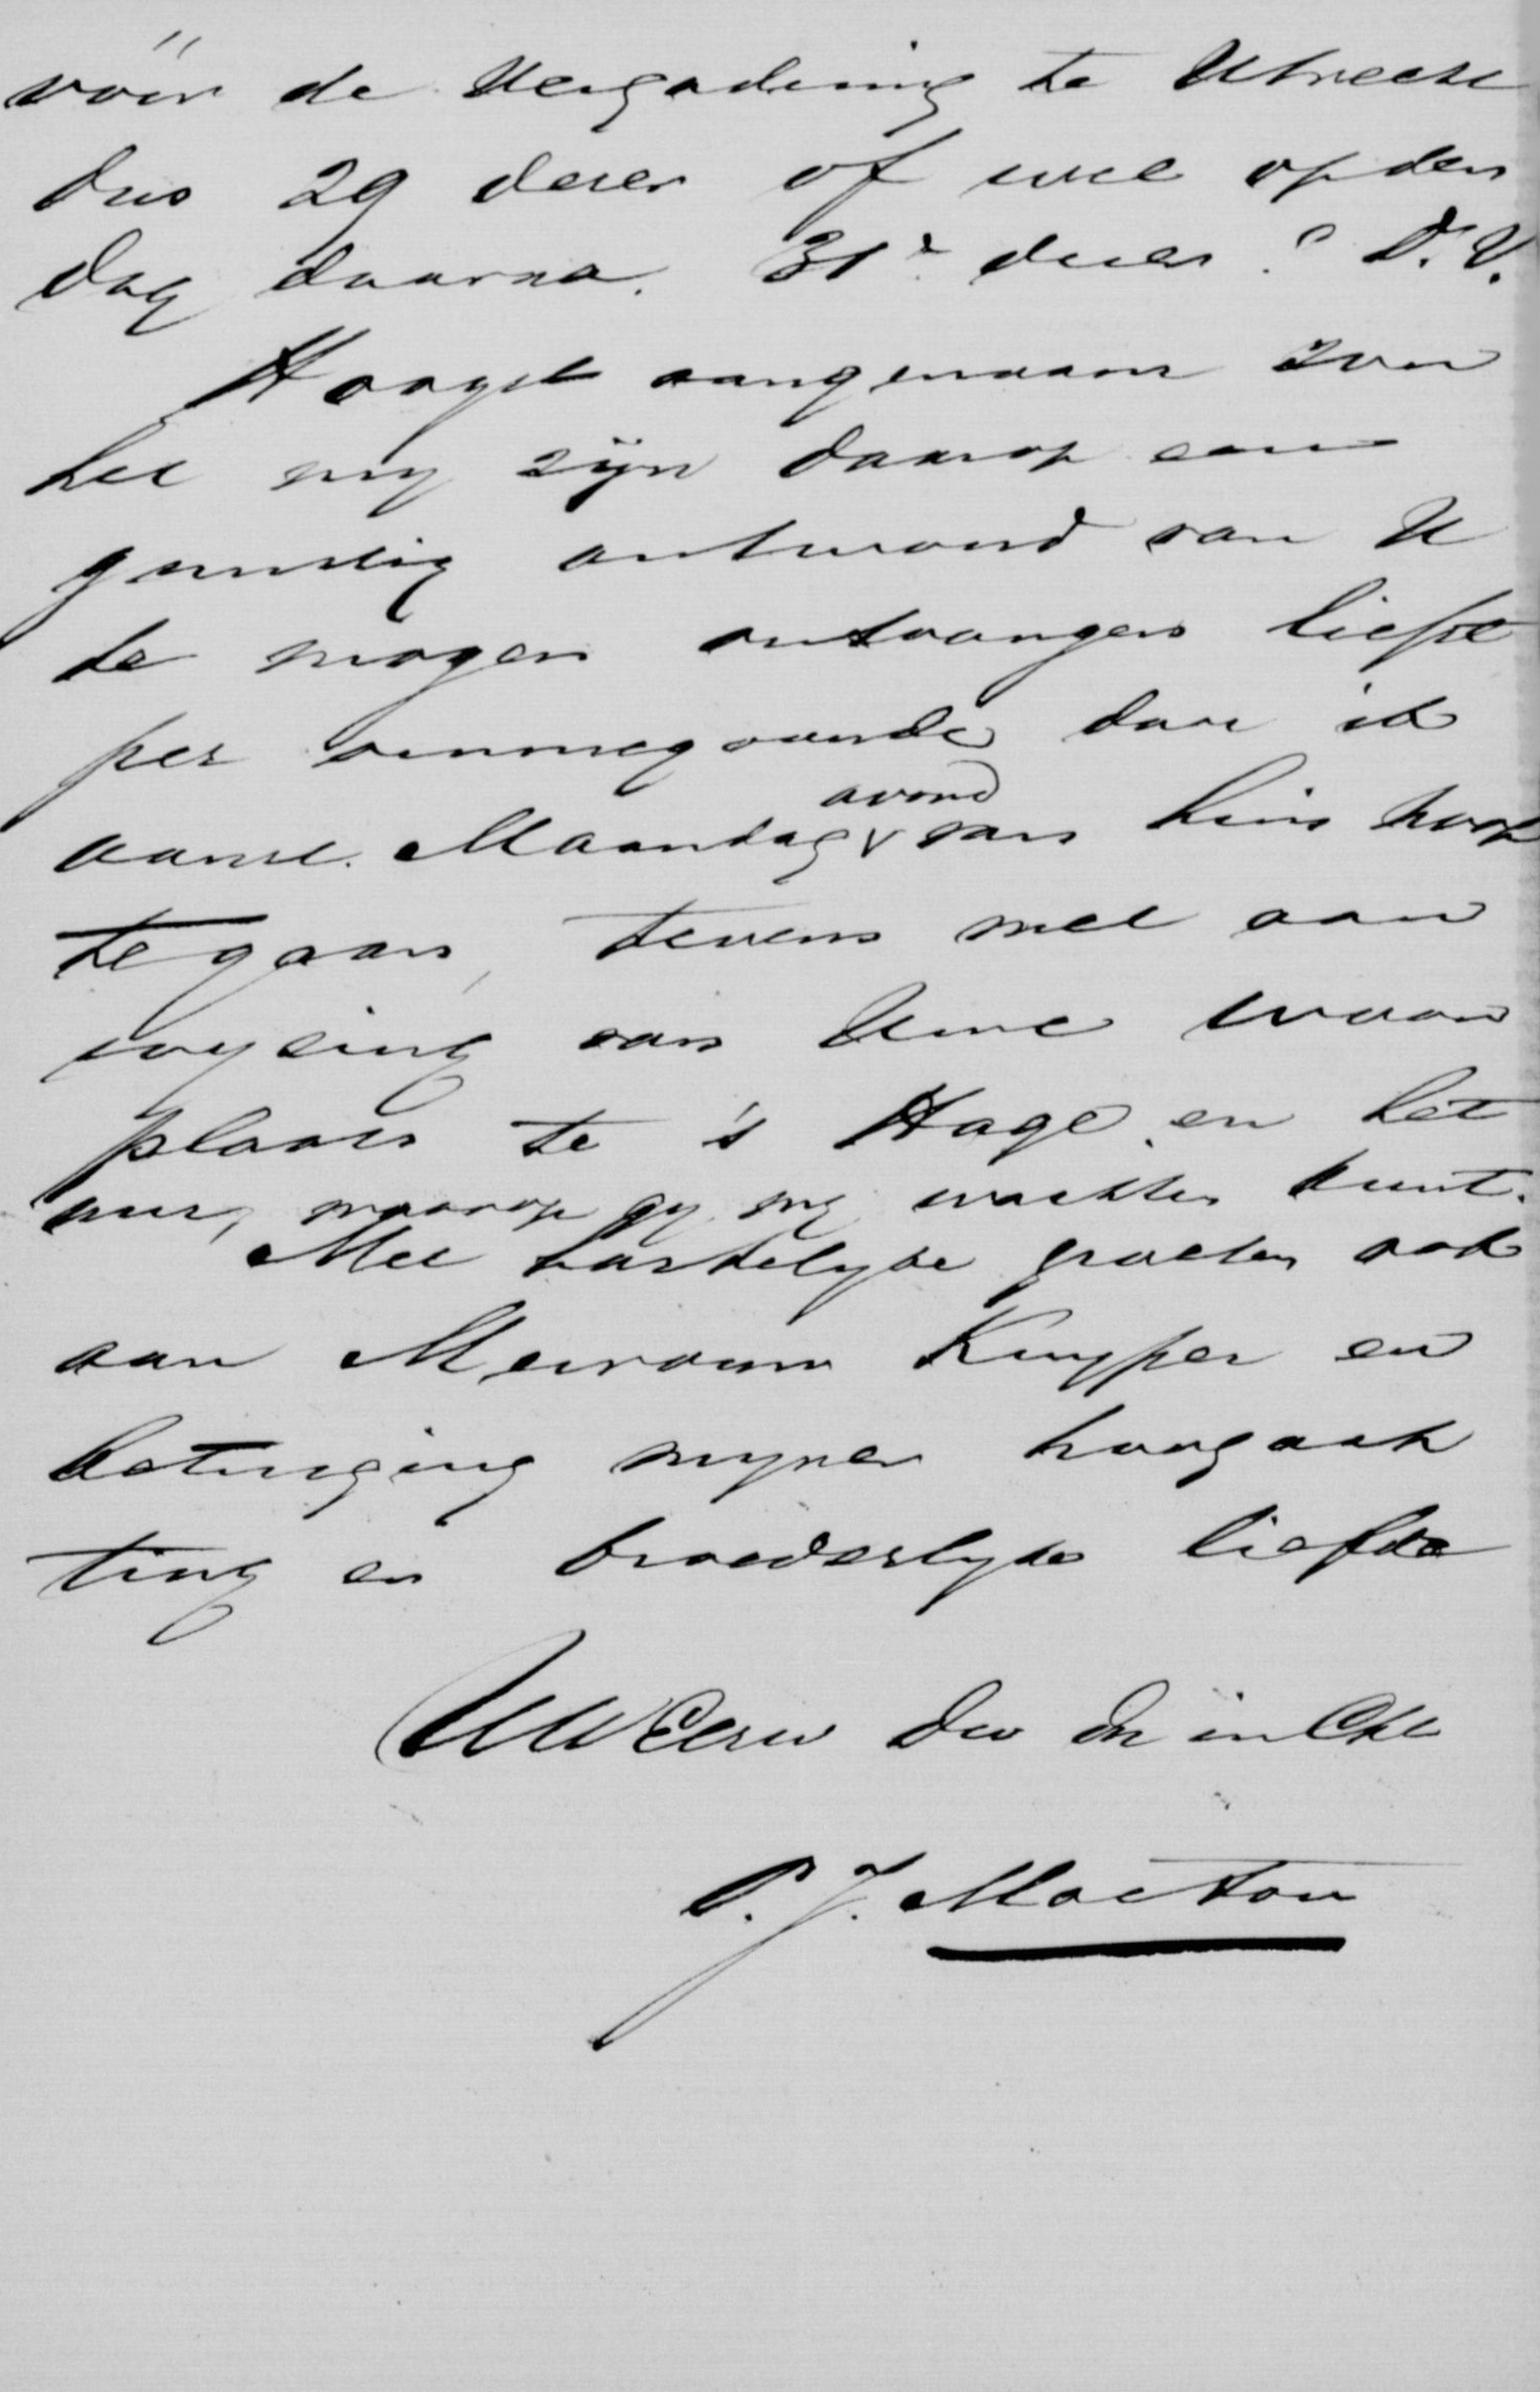 vóór de Vergadering te Utrecht
dus 29 dezer of wel op den
dag daarna. 31e dezer? D.V.
Hoogst aangenaam zou
het my zijn daarop een
gunstig antwoord van U
te mogen ontvangen liefst
per ommegaande daar ik
aanst. Maandag avond van huis hoop
te gaan, tevens met aan
wyzing van Uwe woon
plaats te 's Hage en het
uur, waarop gy my wachten kunt.
Met hartelyke groeten ook
aan Mevrouw Kuyper en
betuiging myner hoogach
ting en broederlyke liefde
UWEerw dw dn in Chr
P. J. Moeton